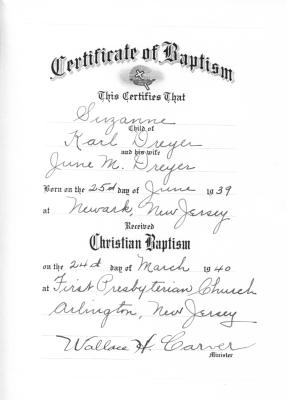 Certificate of Baptism
This Certifies That
Suzanne
Child of
Karl Dreyer
and his wife
June M. Dreyer
Born on the 25d day of June 1939
at Newark, New Jersey
Received
Christian Baptism
on the 24d day of March 1940
at First Presbyterian Church
Arlington, New Jersey
Wallace H. Carver
Minister